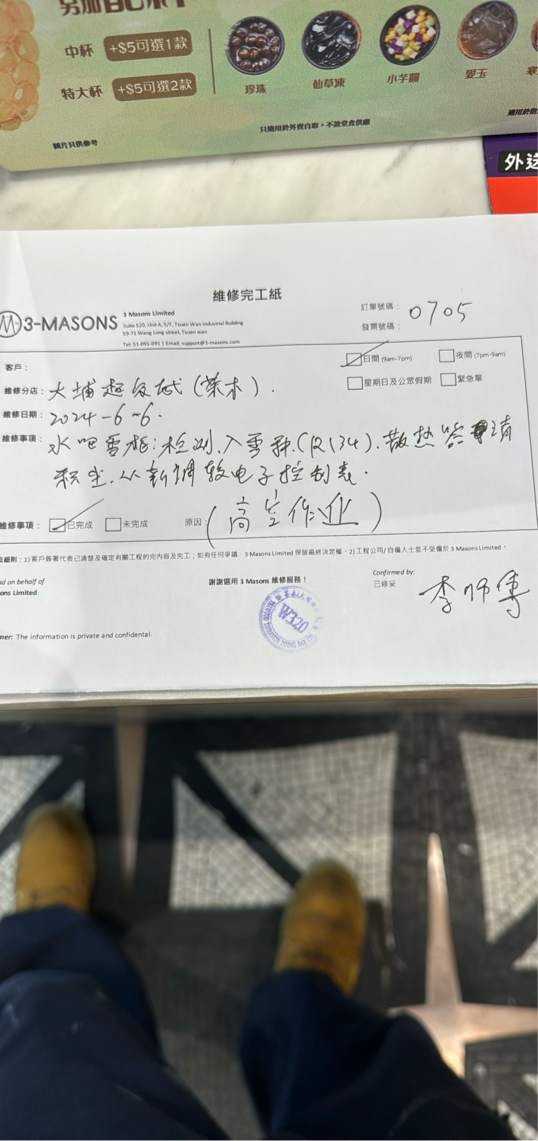 另加自己來!
中杯 +$5可選1款
特大杯 +$5可選2款
珍珠 仙草凍 小芋圓 愛玉
圖片只供參考
只適用於外賣自取，不設堂食供應
外送
維修完工紙
3-MASONS
3 Masons Limited
Suite 520, Unit A, 5/F, Tsuen Wan Industrial Building
59-71 Wang Lung street, Tsuen wan
Tel: 51-091-091 | Email: support@3-masons.com
訂單號碼： 0705
發票號碼：
客戶：
日間 (9am-7pm) 夜間 (7pm-9am)
星期日及公眾假期 緊急單
維修分店： 大埔超級城 (茶木).
維修日期： 2024-6-6.
維修事項： 水吧雪柜: 检测.入雪种.(R134).散热
积尘.从新调较电子控制表.
維修事項： 已完成 未完成 原因： (高空作业)
細則：1)客戶簽署代表已清楚及確定有關工程的完內容及完工；如有任何爭議，3 Masons Limited 保留最終決定權。2)工程公司/自僱人士並不受僱於 3 Masons Limited。
nd on behalf of
ons Limited
謝謝選用 3 Masons 維修服務！
Confirmed by:
已修妥
李师傅
W320
mer: The information is private and confidental.